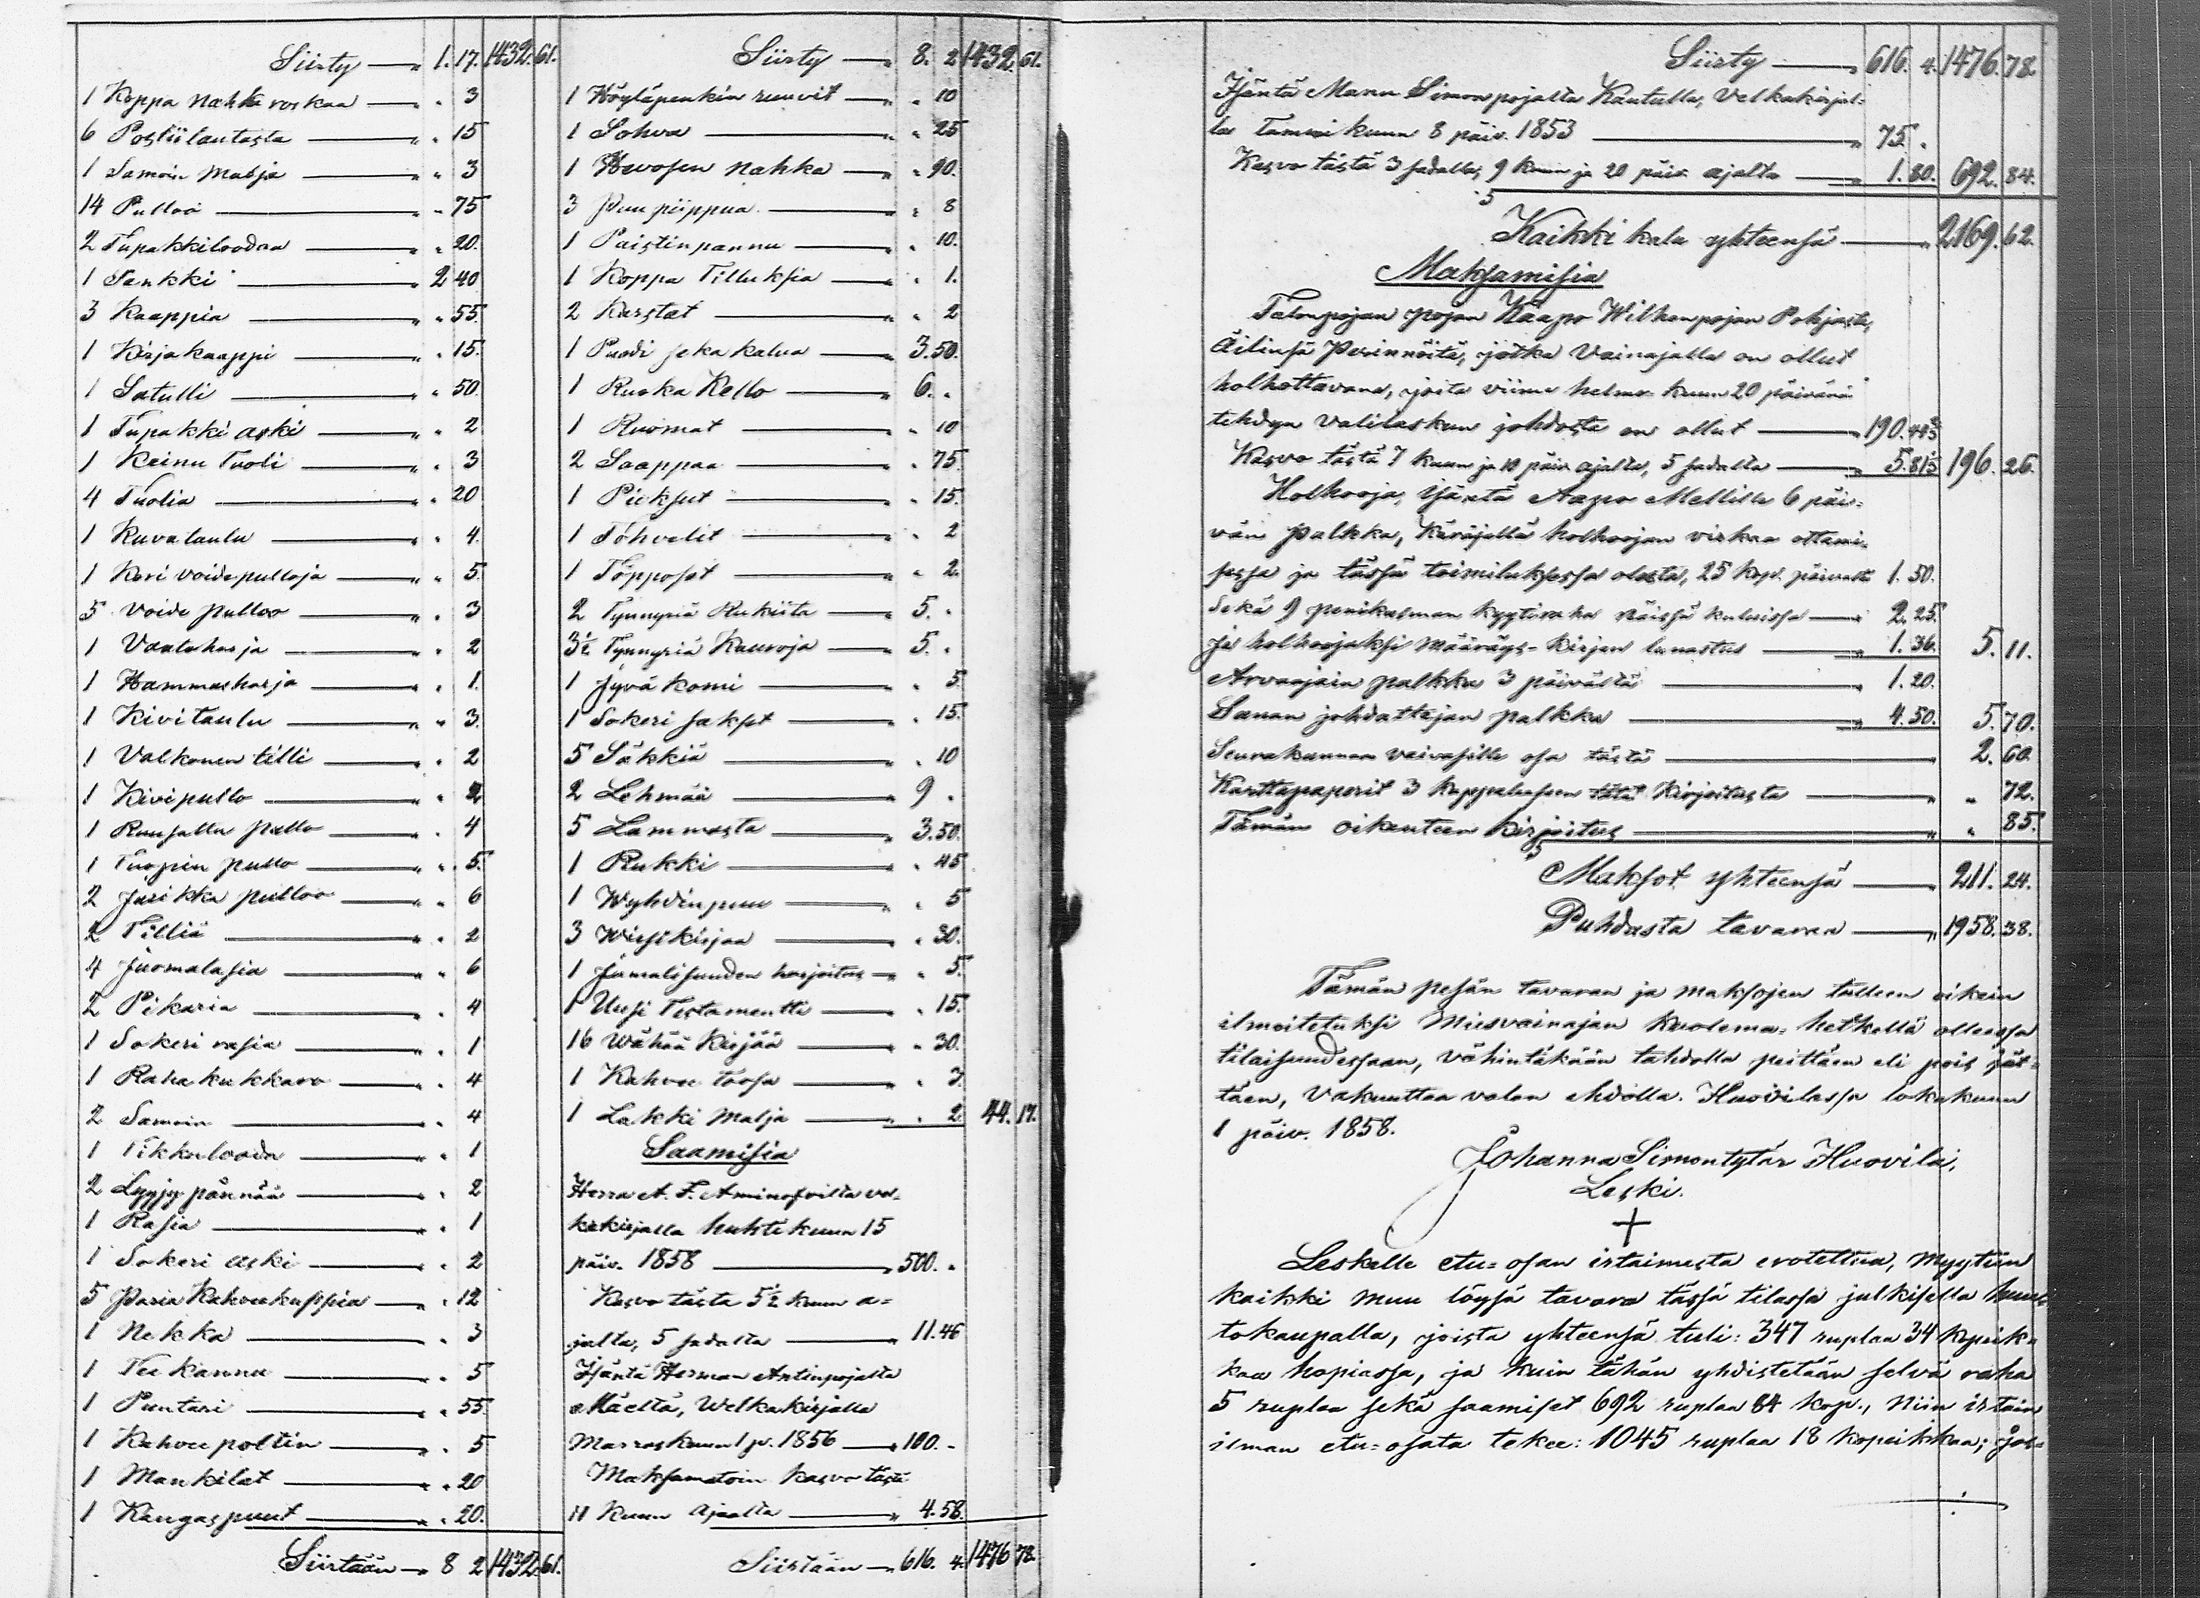 Siirty — „ 1. 17. 1432. 61.
1 Koppa nahka roskaa — „ „ 3
6 Postiilantasta — „ „ 15
1 Samoin Malja — „ „ 3
14 Pulloo — „ „ 75
2 Tupakkiloodaa — „ „ 20.
1 Sankki — „ 2 40
3 Kaappia — „ „ 55.
1 Kirja kaappi — „ „ 15.
1 Satulli — „ „ 50.
1 Tupakki aski — „ „ 2
1 Keinu Tuoli — „ „ 3
4 Tuolia — „ „ 20
1 Kuvataulu — „ „ 4.
1 Kori voidepulloja — „ „ 5.
5 Voide pulloo — „ „ 3
1 Vaateharja — „ „ 2
1 Hammasharja — „ „ 1.
1 Kivitaulu — „ „ 3.
1 Valkonen tilli — „ „ 2
1 Kivipullo — „ „ 2
1 Ruusattu pullo — „ „ 4
1 Tuopin pullo — „ „ 5.
2 Jusikka pulloo — „ „ 6
2 Tilliä — „ „ 2
4 Juomalasia — „ „ 6
2 Pikaria — „ „ 4
1 Sokeri rasia — „ „ 1
1 Raha kukkaro — „ „ 4
2 Samoin — „ „ 4
1 Tikkulooda — „ „ 1
2 Lyyjy pännää — „ „ 2
1 Rasia — „ „ 1
1 Sokeri aski — „ „ 2
5 Paria Kahveekuppia — „ „ 12
1 Nekka — „ „ 3
1 Tee kannu — „ „ 5
1 Puntari — „ „ 55.
1 Kahvee poltin — „ „ 5
1 Mankilat — „ „ 20
1 Kangaspuut — „ „ 20.
Siirtään — „ 8 2 1432. 61.
Siirty — „ 8. 2 1432. 61.
1 Höyläpenkin ruuvit — „ „ 10
1 Sohva — „ „ 25
1 Hevosen nahka — „ „ 90.
3 Puu piippua — „ „ 8
1 Paistinpannu — „ „ 10.
1 Koppa Tilluksia — „ „ 1.
2 Karstat — „ „ 2
1 Puodi seka kalua — „ 3. 50.
1 Ruoka Kello — „ 6. „
1 Ruomat — „ „ 10
2 Saappaa — „ „ 75.
1 Pieksut — „ „ 15.
1 Töhvelit — „ „ 2
1 Töppöset — „ „ 2.
2 Tynnyriä Rukiita — „ 5. „
3½ Tynnyriä Kauroja — „ 5. „
1 Jyvä komi — „ „ 5
1 Sokeri sakset — „ „ 15.
5 Säkkiä — „ „ 10
2 Lehmää — „ 9 „
5 Lammasta — „ 3. 50.
1 Rukki — „ „ 45
1 Wyhdinpuu — „ „ 5
3 Wirsikirjaa — „ „ 30.
1 Jumalisuuden harjoitus — „ „ 5.
1 Uusi Testamentti — „ „ 15.
16 Wähää Kirjää — „ „ 30.
1 Kahvee toosa — „ „ 3
1 Lakki Malja — „ „ 2. 44. 17.
Saamisia
Herra A. F. Aminofvilta vel-
kakirjalla huhtikuun 15
päiv. 1858 — „ 500. „
Kasvo tästä 5½ kuun a=
jalta, 5 sadalta — „ 11. 46
Isäntä Herman Antinpojalta
Mäeltä, Welkakirjalla
Marraskuun 1 p. 1856 — „ 100. „
Maksamatoin kasvo tästä
11 Kuun ajalta — „ 4. 58.
Siirtään — „ 616. 4. 1476 78.
Siirty — „ 616. 4. 1476. 78.
Isäntä Manu Simonpojalta Kautulla, Velkakirjal-
la Tammikuun 8 päiv. 1853 — „ 75. „
Kasvo tästä 3 sadalta, 9 kuun ja 20 päiv. ajalta — „ 1. 80. 692. 84.
Kaikki kalu yhteensä — „ 2169. 62.
Maksamisia
Talonpojan pojan Kaapo Wilhempojan Pohjasta,
Äitinsä Perinnöitä, jotka Vainajalla on ollut
holhottavana, joita viime helmi kuun 20 päivänä
tehdyn Välilaskun johdosta on ollut — „ 190. 44⅗
Kasvo tästä 7 kuun ja 10 päiv ajalta, 5 sadalta — „ 5. 81⅖ 196. 26.
Holhooja, isäntä Aapo Mellilla 6 päi-
vän palkka, Käräjällä holhoojan virkaa ottami-
sessa ja tässä toimituksessa olosta, 25 kop. päivalta 1. 50.
Sekä 9 penikulman kyytiraha näissä kuluissa — „ 2. 25.
Ja holhoojaksi määräys-kirjan lunastus — „ 1. 36. 5. 11.
Arvaajain palkka 3 päivältä — „ 1. 20.
Sanan johdattajan palkka — „ 4. 50. 5. 70.
Seurakunnan vaivasille osa tästä — „ 2. 60.
Karttapaperit 3 kappaleesen tätä Kirjoitusta — „ „ 72.
Tämän oikeuteen kirjoitus — „ „ 85.
Maksot yhteensä — „ 211. 24.
Puhdasta tavaraa — „ 1958. 38.
Tämän pesän tavaran ja maksojen tulleen oikein
ilmoitetuksi Miesvainajan kuolema-hetkellä olleessa
tilaisuudessaan, vähintäkään tahdolla peittäen eli pois jät-
täen, Vakuuttaa valan ehdolla. Huovilassa lokakuun
1 päiv. 1858.
Johanna Simontytär Huovila,
Leski.
+
Leskelle etu=osan irtaimesta erotettua, myytiin
kaikki muu löysä tavara tässä tilassa julkisella huu-
tokaupalla, joista yhteensä tuli: 347 ruplaa 34 kopeik-
kaa hopiassa, ja kuin tähän yhdistetään selvä raha
5 ruplaa sekä saamiset 692 ruplaa 84 kop., niin irtain
ilman etu=osata tekee: 1045 ruplaa 18 kopeikkaa; Jos=